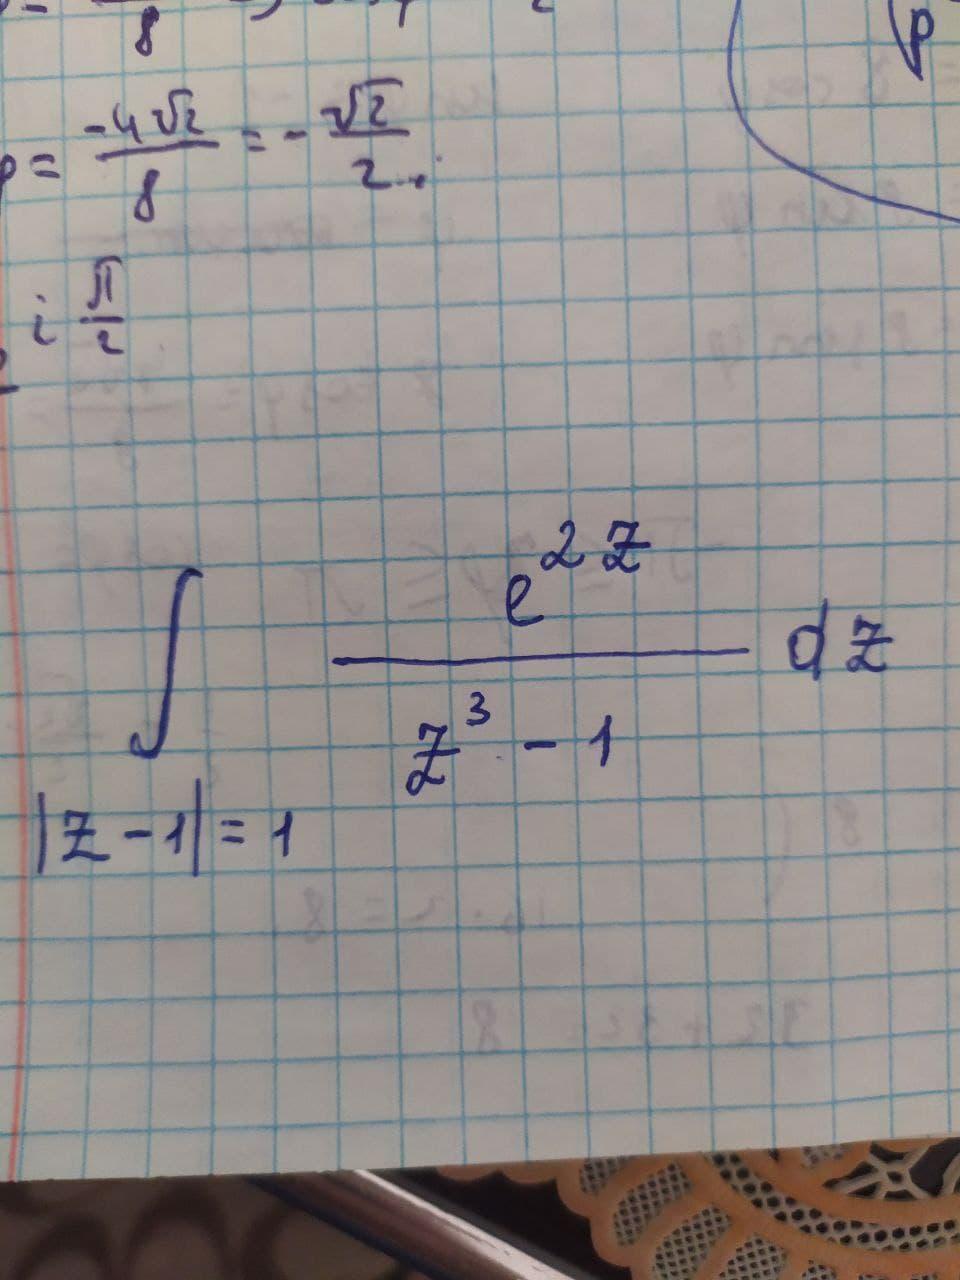 8
= \frac{-4\sqrt{2}}{8} = -\frac{\sqrt{2}}{2}
i \frac{π}{2}
\int_{|z-1|=1} \frac{e^{2z}}{z^3 - 1} dz